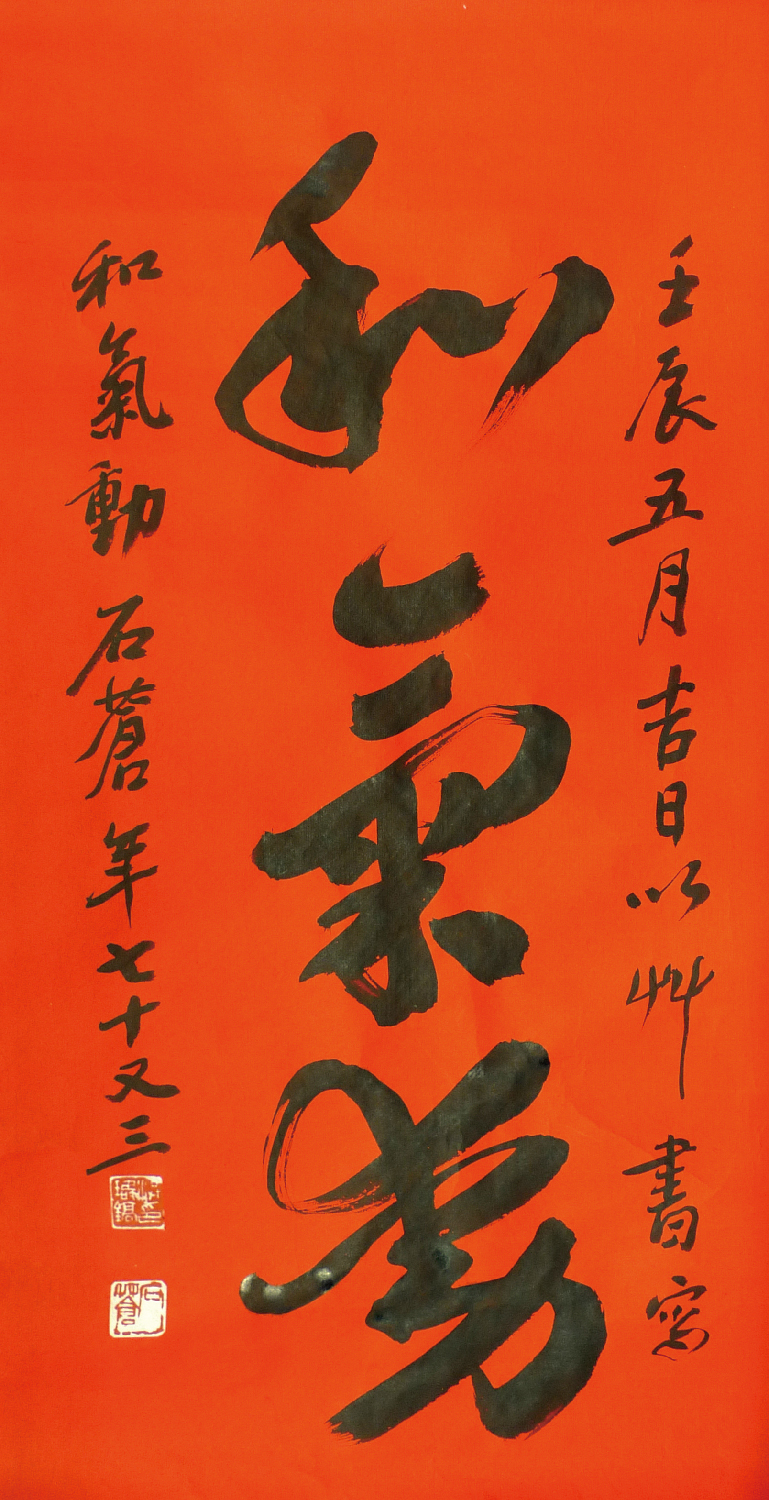 壬辰五月吉日以艸書寫
和氣動
和氣動 石蒼 年七十又三
石蒼